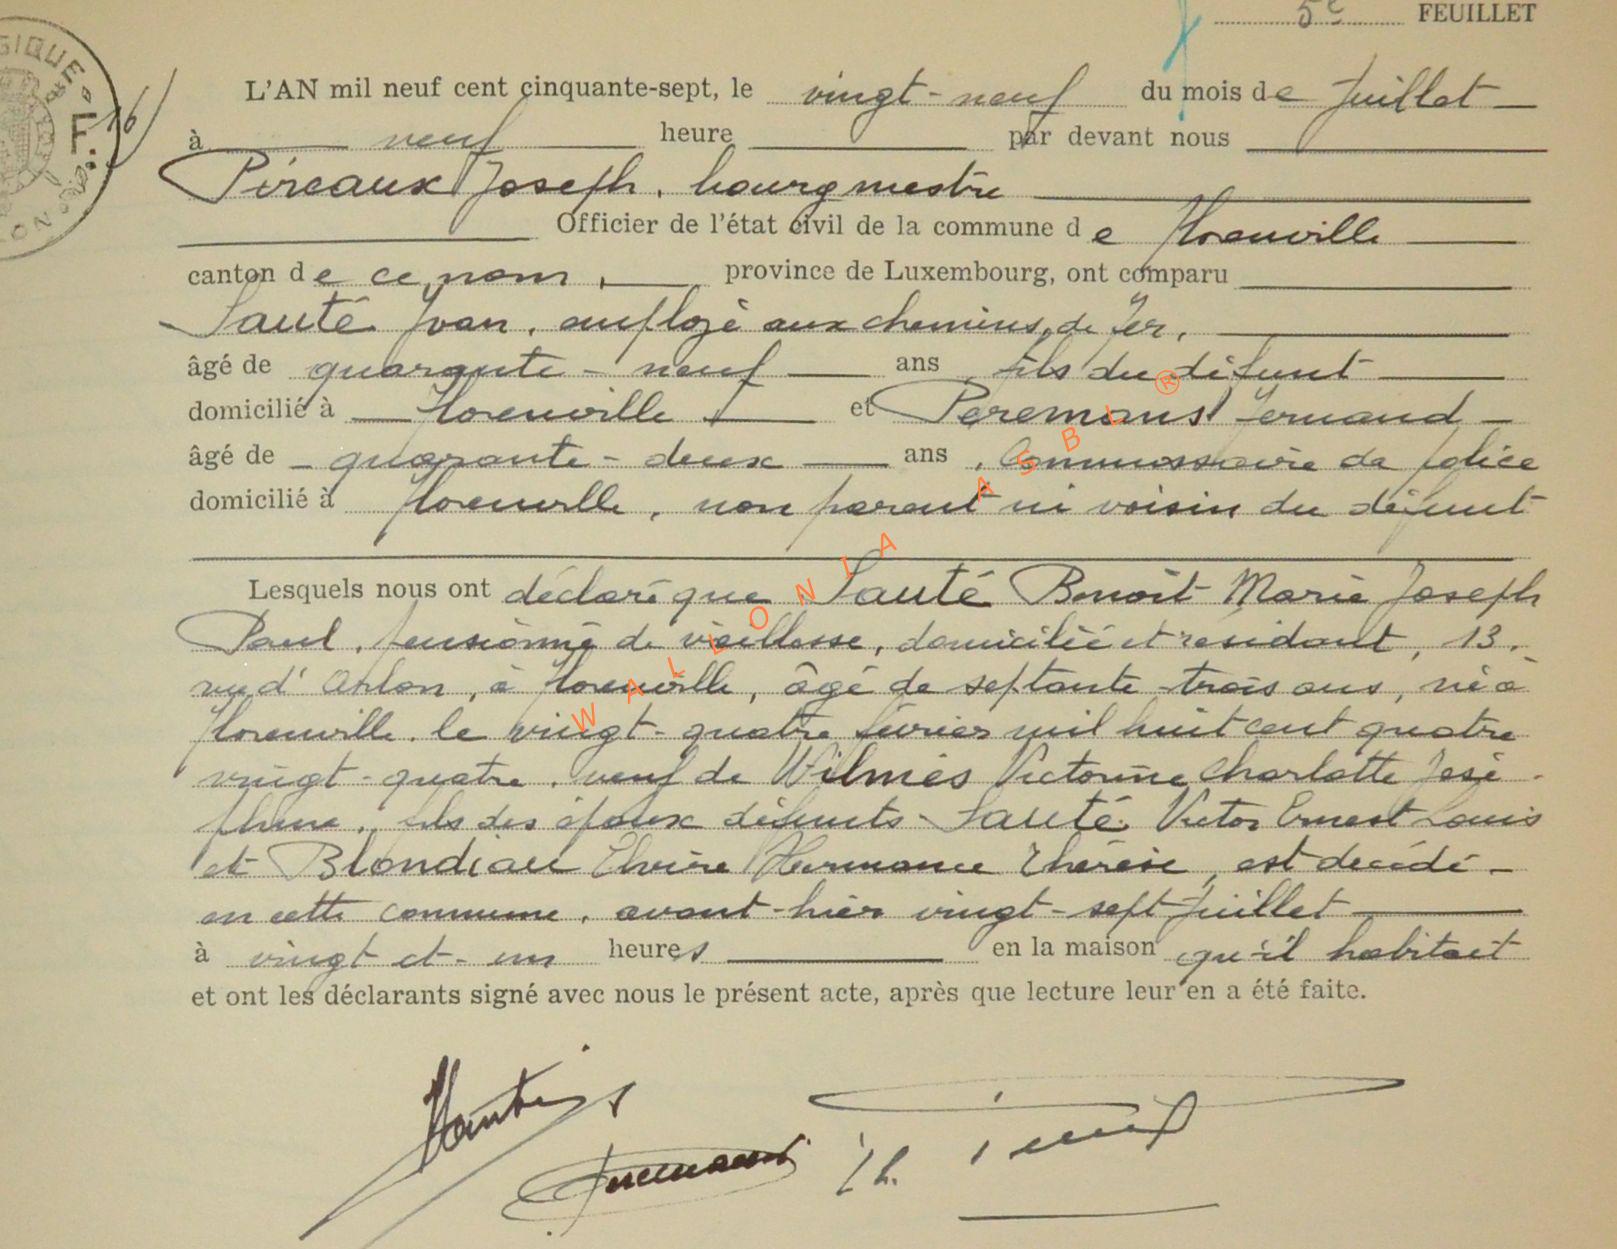 5e FEUILLET
16/
L'AN mil neuf cent cinquante-sept, le vingt-neuf du mois de Juillet
à neuf heure par devant nous
Pireaux Joseph, bourgmestre
Officier de l'état civil de la commune de Florenville
canton de ce nom, province de Luxembourg, ont comparu
Sauté Yvan, employé aux chemins de fer,
âgé de quarante-neuf ans fils du défunt
domicilié à Florenville et Peremans Fernand
âgé de quarante-deux ans, Commissaire de police
domicilié à Florenville, non parent ni voisin du défunt
Lesquels nous ont déclaré que Sauté Benoît Marie Joseph
Paul, pensionné de vieillesse, domicilié et résidant, 13,
rue d'Arlon, à Florenville, âgé de septante-trois ans, né à
Florenville le vingt-quatre février mil huit cent quatre
vingt-quatre, veuf de Wilmès Victorine Charlotte José-
phine, fils des époux défunts Sauté Victor Ernest Louis
et Blondiau Elvire Hermance Thérèse, est décédé
en cette commune, avant-hier vingt-sept Juillet
à vingt et un heures en la maison qu'il habitait
et ont les déclarants signé avec nous le présent acte, après que lecture leur en a été faite.
WALLONIA ASBL ®